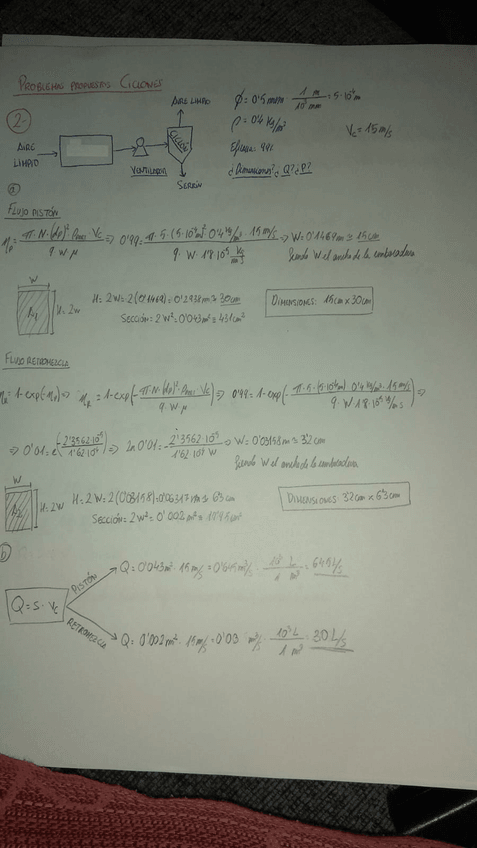 PROBLEMAS PROPUESTOS CICLONES
2
AIRE LIMPIO
AIRE LIMPIO
VENTILADOR
CICLÓN
SERRÍN
Ø = 0'5 mm · 1 m / 10³ mm = 5·10⁻⁴ m
ρ = 0'4 kg/m³
Vc = 15 m/s
Eficacia: 99%
¿Dimensiones? ¿Q? ¿P?
a
FLUJO PISTÓN
ηp = π·N·(dp)²·ρ · Vc / 9·W·μ ⇒ 0'99 = π·5·(5·10⁻⁴m)²·0'4 kg/m³·15 m/s / 9·W·1'8·10⁻⁵ kg/m·s ⇒ W = 0'1469 m ≅ 15 cm
Siendo W el ancho de la embocadura
W
A₁
H = 2W
H = 2W = 2(0'1469) = 0'2938 m ≅ 30 cm
Sección = 2W² = 0'043 m² ≅ 431 cm²
DIMENSIONES: 15cm x 30cm
FLUJO RETROMEZCLA
ηR = 1-exp(-ηp) ⇒ ηR = 1-exp(- π·N·(dp)²·ρ · Vc / 9·W·μ) ⇒ 0'99 = 1-exp(- π·5·(5·10⁻⁴m) 0'4 kg/m³·15 m/s / 9·W·1'8·10⁻⁵ kg/m·s) ⇒
⇒ 0'01 = e(- 2'3562·10⁻⁵ / 1'62·10⁻⁴ W) ⇒ ln 0'01 = - 2'3562·10⁻⁵ / 1'62·10⁻⁴ W ⇒ W = 0'03158 m ≅ 32 cm
Siendo W el ancho de la embocadura
W
A₂
H = 2W
H = 2W = 2(0'03158) = 0'06317 m ≅ 63 cm
Sección = 2W² = 0'002 m²
DIMENSIONES: 32cm x 63cm
b
Q = S · Vc
PISTÓN
Q = 0'043 m² · 15 m/s = 0'645 m³/s · 10³ L / 1 m³ = 645 L/s
RETROMEZCLA
Q = 0'002 m² · 15 m/s = 0'03 m³/s · 10³ L / 1 m³ = 30 L/s